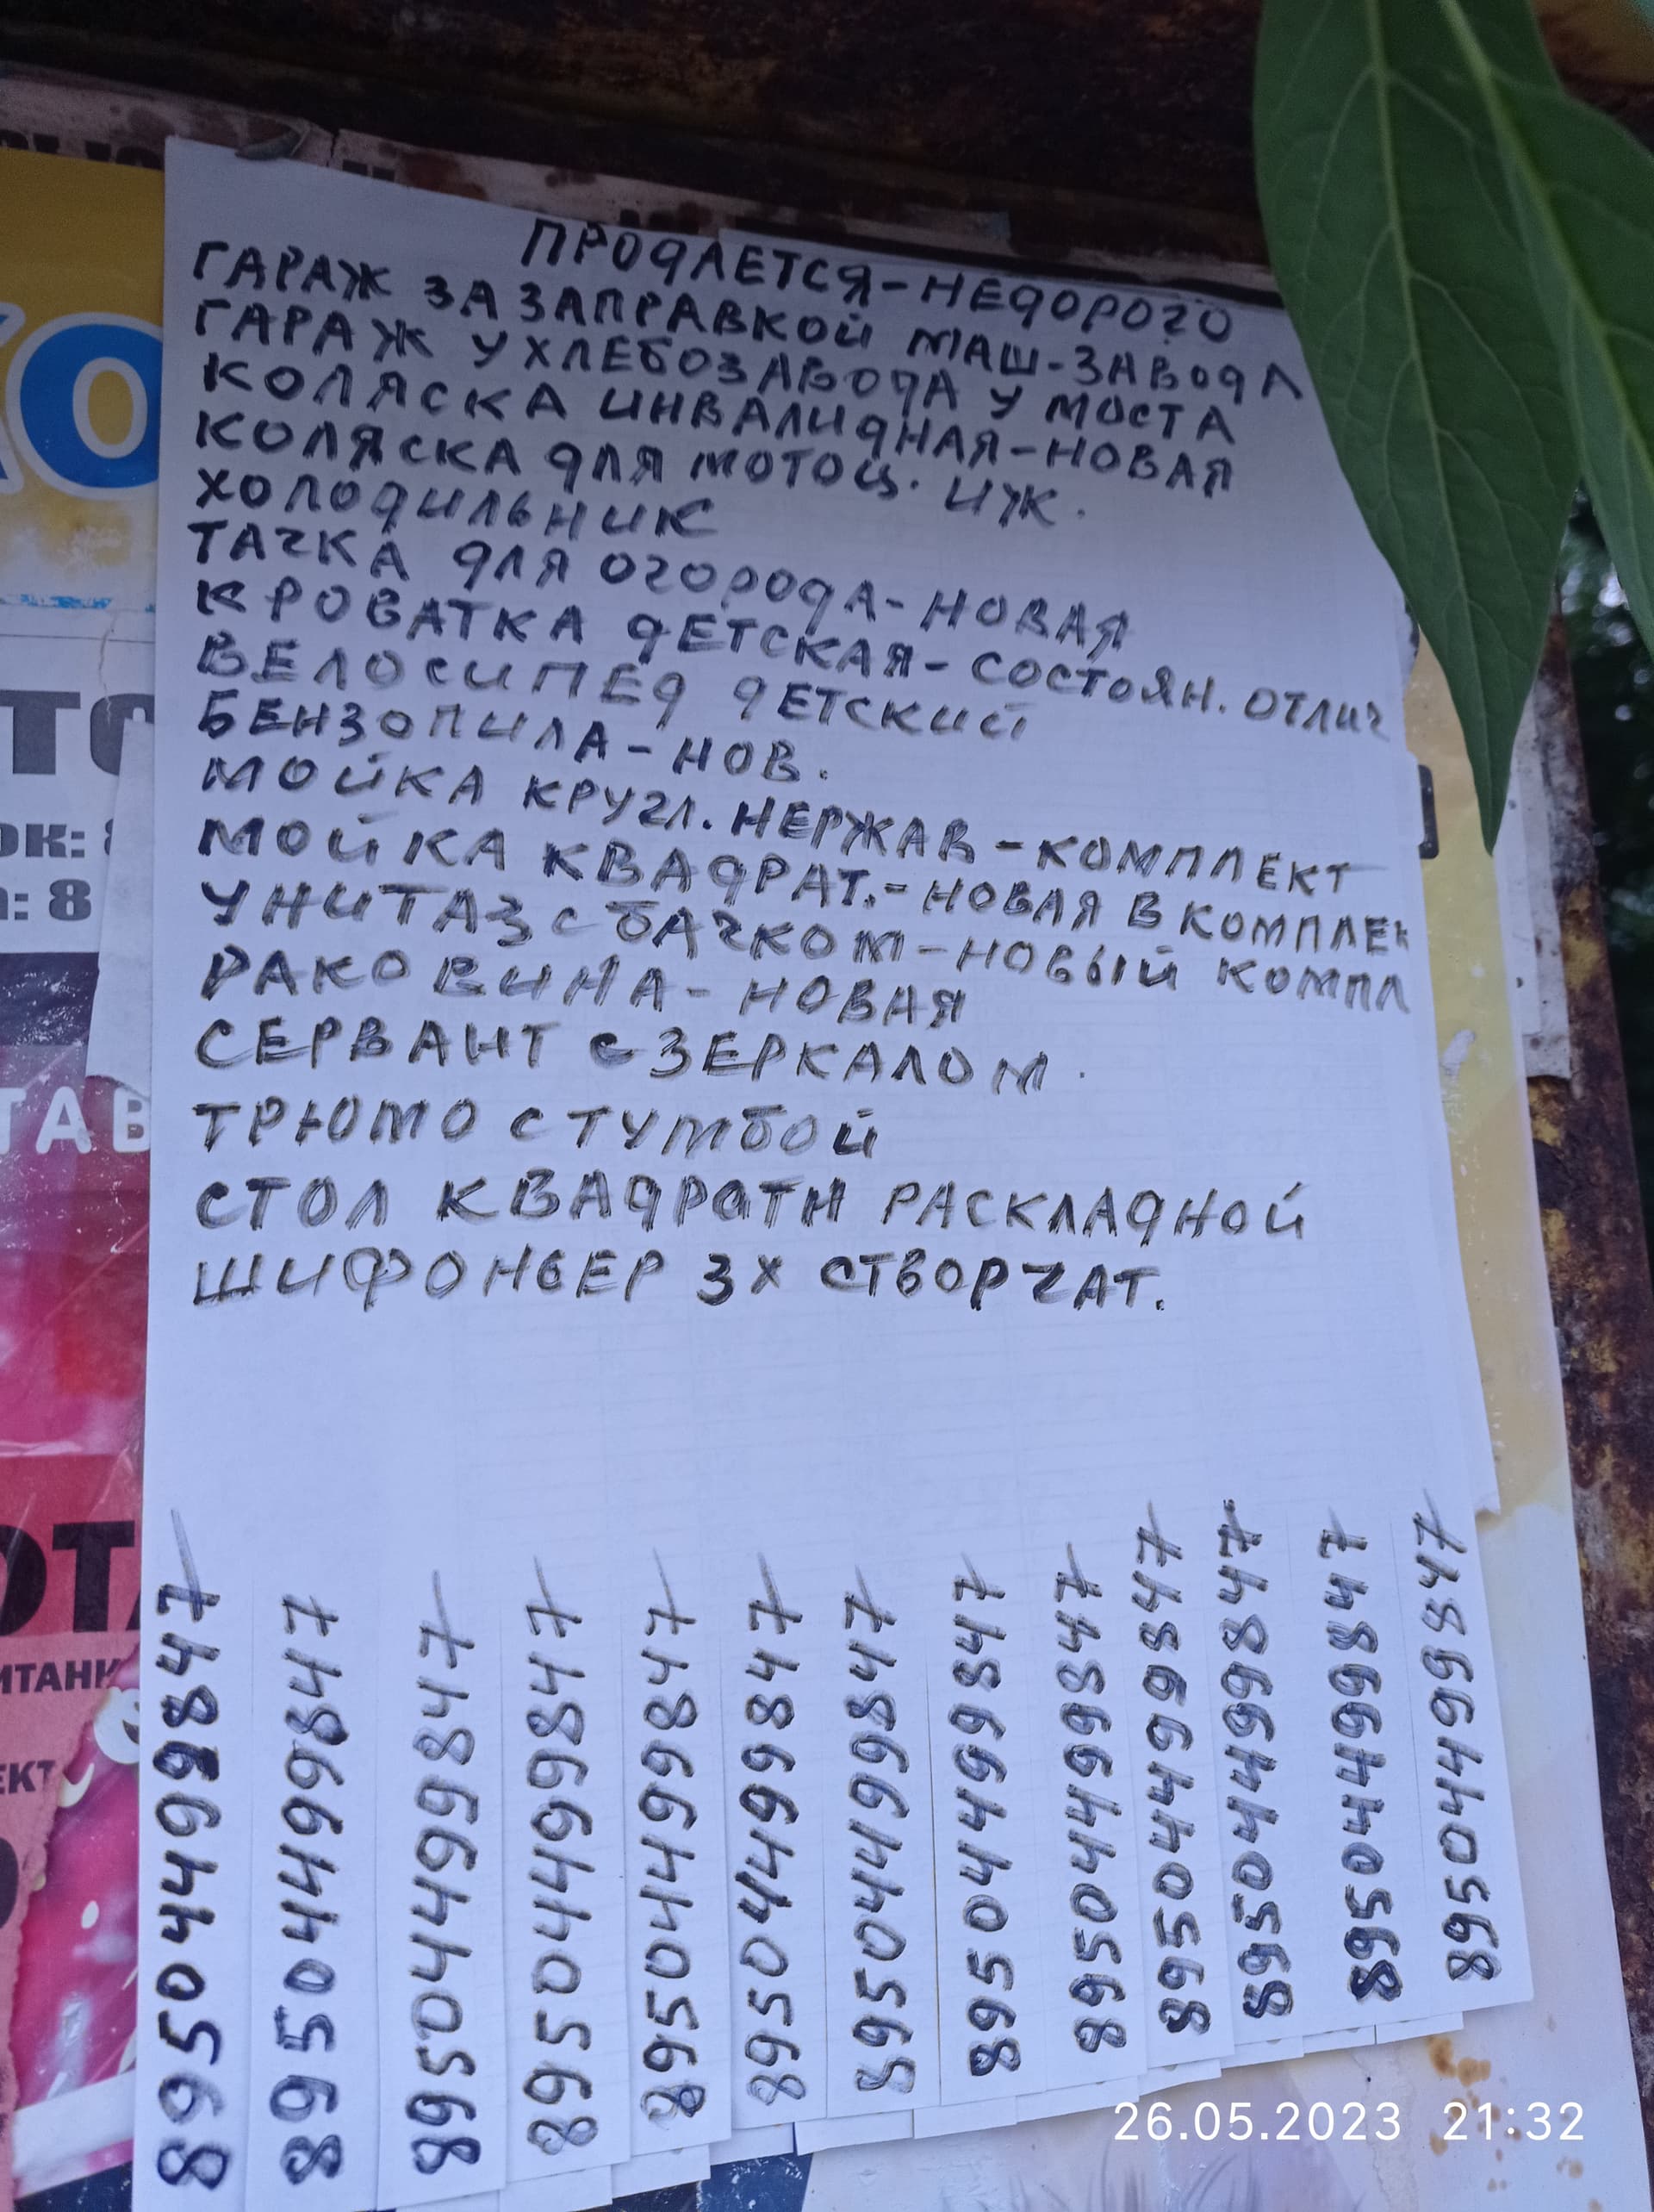 ПРОДАЕТСЯ-НЕДОРОГО
ГАРАЖ ЗА ЗАПРАВКОЙ МАШ-ЗАВОДА
ГАРАЖ У ХЛЕБОЗАВОДА У МОСТА
КОЛЯСКА ИНВАЛИДНАЯ-НОВАЯ
КОЛЯСКА ДЛЯ МОТОЦ. ИЖ.
ХОЛОДИЛЬНИК
ТАЧКА ДЛЯ ОГОРОДА-НОВАЯ
КРОВАТКА ДЕТСКАЯ-СОСТОЯН. ОТЛИЧ
ВЕЛОСИПЕД ДЕТСКИЙ
БЕНЗОПИЛА-НОВ.
МОЙКА КРУГЛ. НЕРЖАВ-КОМПЛЕКТ
МОЙКА КВАДРАТ.-НОВАЯ В КОМПЛЕК
УНИТАЗ С БАЧКОМ-НОВЫЙ КОМПЛ
РАКОВИНА-НОВАЯ
СЕРВАНТ С ЗЕРКАЛОМ.
ТРЮМО С ТУМБОЙ
СТОЛ КВАДРАТН РАСКЛАДНОЙ
ШИФОНЬЕР 3Х СТВОРЧАТ.
89504499847
89504499847
89504499847
89504499847
89504499847
89504499847
89504499847
89504499847
89504499847
89504499847
89504499847
89504499847
89504499847
26.05.2023 21:32